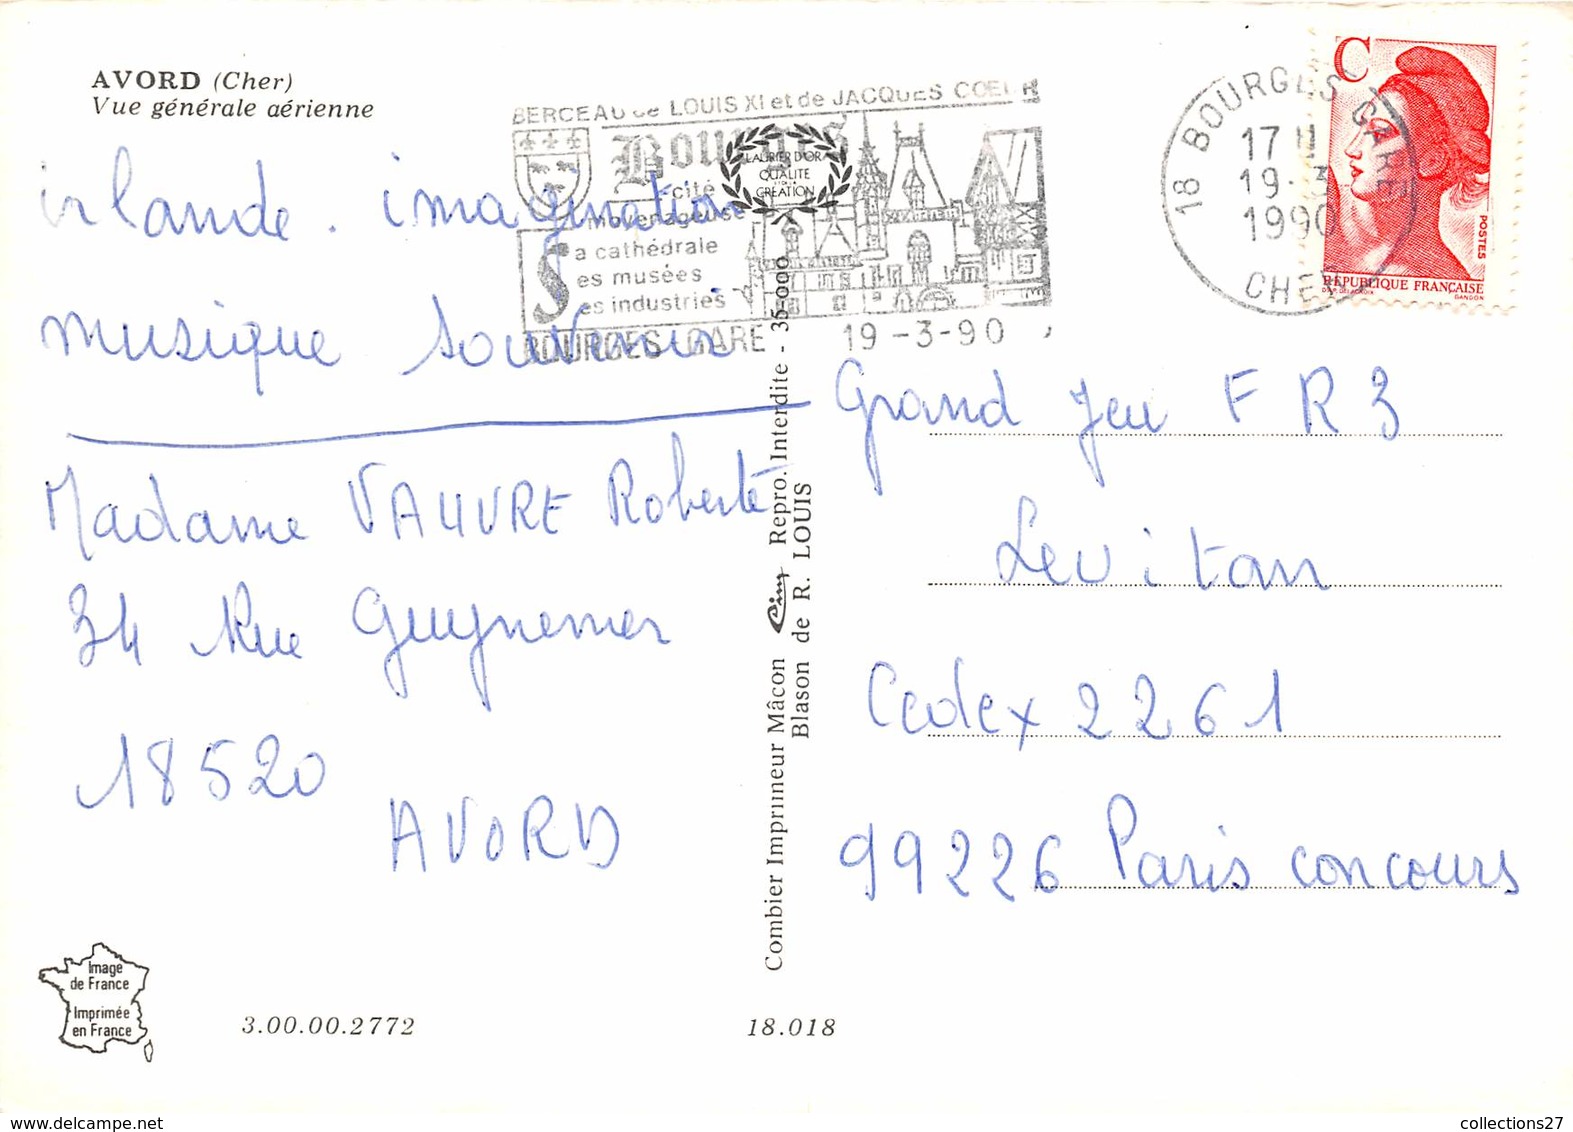 AVORD (Cher)
Vue générale aérienne
BERCEAU de LOUIS XI et de JACQUES COEUR
Bourges
cité
moyenageuse
Sa cathédrale
Ses musées
Ses industries
BOURGES GARE 19-3-90
LAURIER D'OR
QUALITE
CREATION
18 BOURGES GARE
17 H
19-3
1990
CHER
C
POSTES
RÉPUBLIQUE FRANÇAISE
D'AP. DELACROIX GANDON
irlande. imagination
musique souvenir
Madame VAUVRE Roberte
34 Rue Guynemer
18520
AVORD
Combier Imprimeur Mâcon Cim Repro. Interdite - 35-000
Blason de R. LOUIS
Grand Jeu F R 3
Levitan
Cedex 2261
99226 Paris concours
Image
de France
Imprimée
en France
3.00.00.2772
18.018
collections27